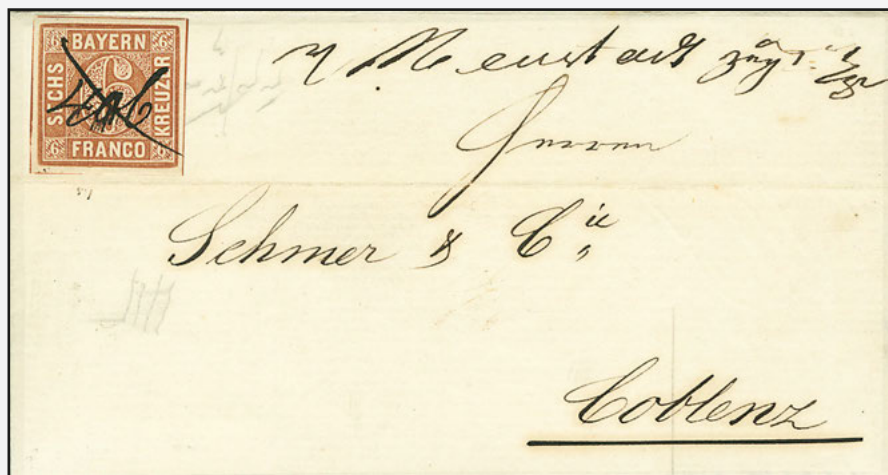 6 BAYERN 6
SECHS
KREUZER
6
6 FRANCO 6
Neustadt
Herren
Schmer & Cie
Coblenz